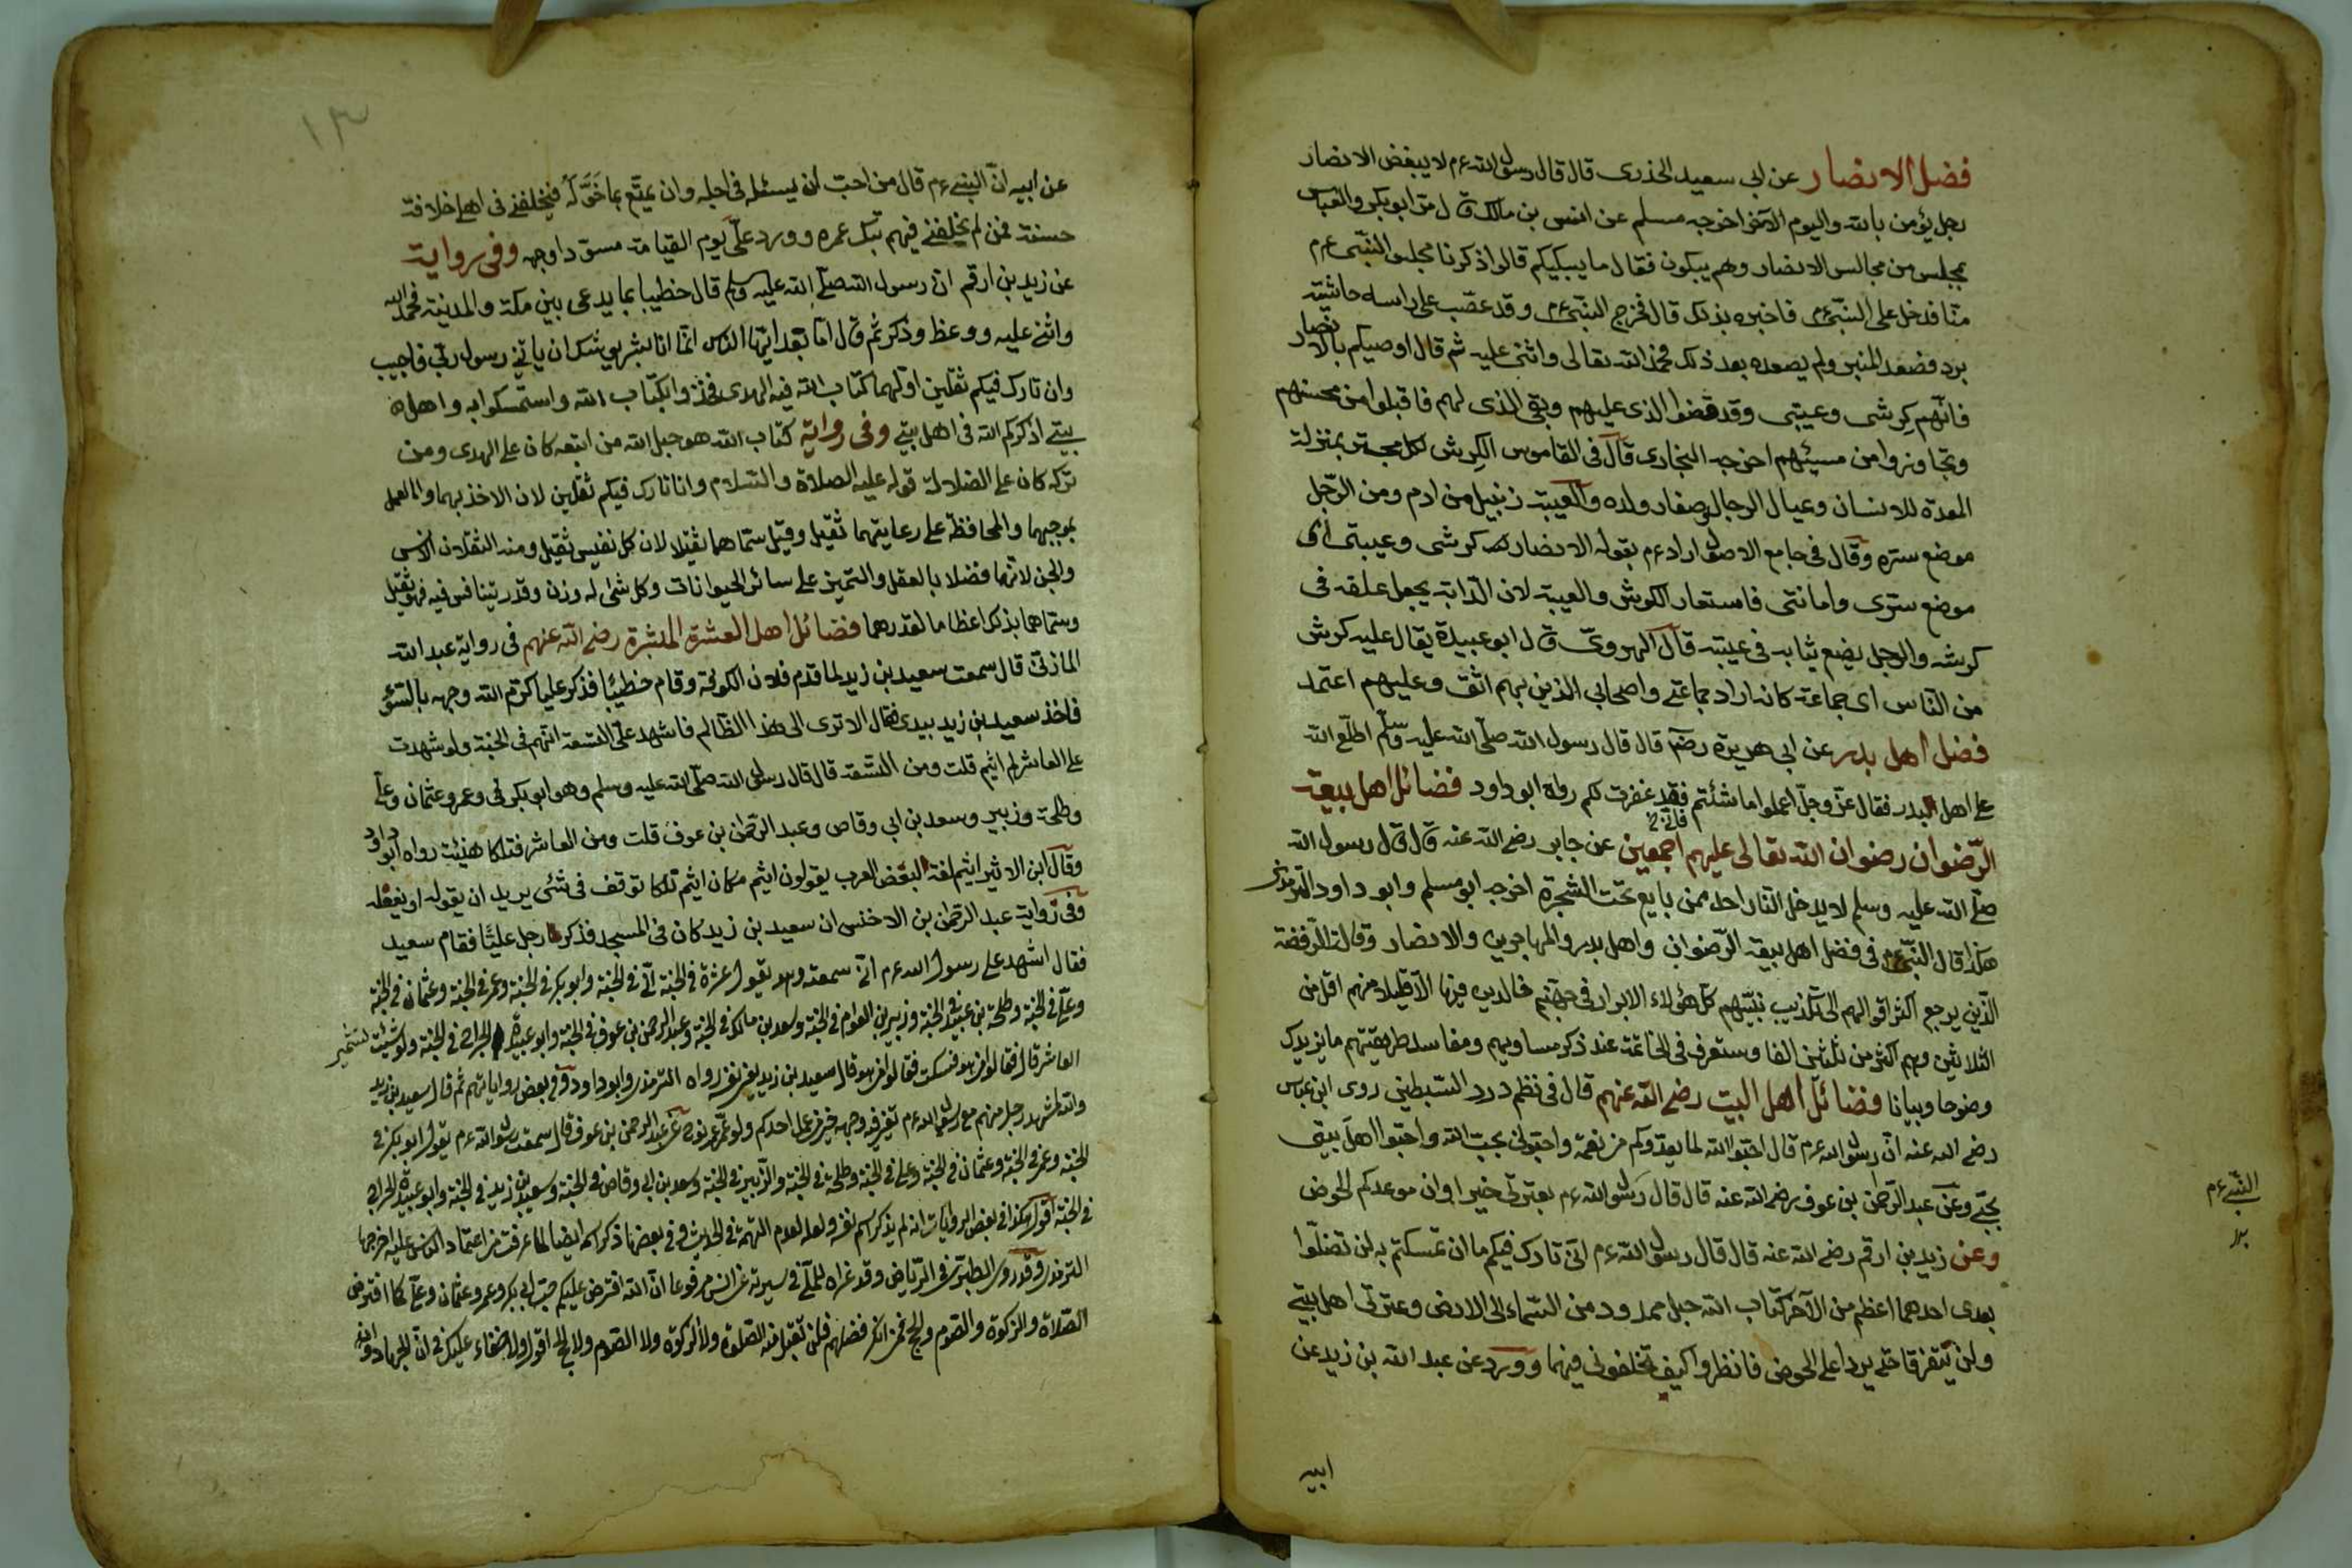 فضل الانصار عن ابى سعيد الخذرى قال قال رسول الله ءم لا يبغض الانصار
رجل يؤمن بالله واليوم الآخر اخرجه مسلم عن انس بن مالك قال مرّ ابو بكر والعباس
بمجلس من مجالس الانصار وهم يبكون فقال ما يبكيكم قالوا ذكرنا مجلس النبّى ءم
منّا فدخل على النبّى ءم فاخبره بذلك قال فخرج النبّى ءم وقد عصّب على راسه حاشية
برد فصعد المنبر ولم يصعده بعد ذلك فحمد الله تعالى واثنى عليه ثم قال اوصيكم بالانصار
فانّهم كِرشى وعيبتى وقد قضوا الذى عليهم وبقى الذى لهم فاقبلوا من محسنهم
وتجاوزوا من مسيئهم اخرجه البخارى قال فى القاموس الكِرش لكل مجتر بمنزلة
المعدة للانسان وعيال الرجال وصغار ولده والعيبة زنبيل من ادم ومن الرّجل
موضع سرّه وقال فى جامع الاصول اراد ءم بقوله الانصار كرشى وعيبتى اى
موضع سرّى وامانتى فاستعار الكرش والعيبة لان الدّابة يجعل علفه فى
كرشه والرجل يضع ثيابه فى عيبته قال الهروىّ قال ابو عبيدة يقال عليه كرش
من النّاس اى جماعة كانه اراد جماعتى واصحابى الذين بهم اثق وعليهم اعتمد
فضل اهل بدر عن ابى هريرة رضّ قال قال رسول الله صلّى الله عليه وسلّم اطلّع الله
على اهل البدر فقال عزّ وجلّ اعملوا ما شئتم فقد غفرت لكم رواه ابو داود فضائل اهل بيعة
الرّضوان رضوان الله تعالى عليهم اجمعين عن جابر رضى الله عنه قال قال رسول الله
صلّى الله عليه وسلم لا يدخل النّار احد ممن بايع تحت الشجرة اخرجه ابو مسلم وابو داود الترمذى
هكذا قال النبّى ءم فى فضل اهل بيعة الرّضوان واهل بدر والمهاجرين والانصار وقال الرّفضة
الّذين يرجع اكثر اقوالهم الى تكذيب نبيّهم كلّ هؤلاء الابرار فى جهنّم خالدين فيها الّا قليلا منهم اقل من
الثلاثين وهم اكثر من ثلثين الفا وستعرف فى الخاتمة عند ذكر مساويهم ومفاسد طريقتهم ما يزيدك
وضوحا وبيانا فضائل اهل البيت رضى الله عنهم قال فى نظم درر السّبطين روى ابن عباس
رضى الله عنه انّ رسول الله ءم قال احبّوا الله لما يغذوكم من نعمه واحبّونى بحبّ الله واحبّوا اهل بيتى
بحبّى وعن عبد الرّحمن بن عوف رضى الله عنه قال قال رسول الله ءم بعترتى خيرا وان موعدكم الحوض
النبّى ءم
وعن زيد بن ارقم رضى الله عنه قال قال رسول الله ءم انّى تارك فيكم ما ان تمسكتم به لن تضلّوا
بعدى احدهما اعظم من الآخر كتاب الله حبل ممدود من السّماء الى الارض وعترتى اهل بيتى
ولن يتفرقا حتى يردا على الحوض فانظروا كيف تخلفونى فيهما وورد عن عبد الله بن زيد عن
ابيه
١٣
عن ابيه انّ النبّى ءم قال من احبّ ان يسئل فى اجله وان يمتّع بما خَوَّلَه فليخلفنى فى اهلى خلافة
حسنة فمن لم يخلفنى فيهم بتك عمره وورد علىّ يوم القيامة مسودّا وجهه وفى رواية
عن زيد بن ارقم انّ رسول الله صلّى الله عليه وسلم قال خطيبا بما يدعى بين مكة والمدينة فحمد الله
واثنى عليه ووعظ وذكر ثم قال امّا بعد ايّها الناس انّما انا بشر يوشك ان ياتى رسول ربّى فاجيب
وان تارك فيكم ثقلين اوّلهما كتاب الله فيه الهدى فخذوا بكتاب الله واستمسكوا به واهل
بيتى اذكركم الله فى اهل بيتى وفى رواية كتاب الله هو حبل الله من اتبعه كان على الهدى ومن
تركه كان على الضلالة قوله عليه الصلاة والسّلام وانا تارك فيكم ثقلين لان الاخذ بهما والعمل
بموجبهما والمحافظة على رعايتهما ثقيل وقيل سمّاهما ثقيلا لان كل نفيس ثقيل ومنه الثقلان الانس
والجن لانّهما فضلا بالعقل والتميز على سائر الحيوانات وكل شئ له وزن وقدر يتنافس فيه فهو ثقيل
وسمّاهما بذلك اعظاما لقدرهما فضائل اهل العشرة المبشرة رضى الله عنهم فى رواية عبد الله
المازنى قال سمعت سعيد بن زيد لما قدم فلان الكوفة وقام خطيبًا فذكر عليا كرّم الله وجهه بالسّوء
فاخذ سعيد بن زيد بيدى فقال الا ترى الى هذا الظّالم فاشهد على التسعة انّهم فى الجنة ولو شهدت
على العاشر لم ايثم قلت ومن التسعة قال قال رسول الله صلّى الله عليه وسلم وهو ابو بكر وعمر وعثمان وعلى
وطلحة وزبير وسعد بن ابى وقاص وعبد الرّحمن بن عوف قلت ومن العاشر فتلكا هنيئة رواه ابو داود
وقال ابن الاثير ايثم لغة البعض العرب يقولون ايثم مكان ايثم تلكا توقف فى شئ يريد ان يقوله او يفعله
وفى رواية عبد الرّحمن بن الاخنس ان سعيد بن زيد كان فى المسجد فذكر رجل عليًّا فقام سعيد
فقال اشهد على رسول الله ءم انّى سمعته وهو يقول عشرة فى الجنة النبى فى الجنة وابو بكر فى الجنة وعمر فى الجنة وعثمان فى الجنة
وعلىّ فى الجنة وطلحة بن عبيد فى الجنة وزبير بن العوام فى الجنة وسعد بن مالك فى الجنة وعبد الرحمن بن عوف فى الجنة وابو عبيدة الجراح فى الجنة ولو شئت لسمّيت
العاشر قال فقالوا من هو فسكت فقالوا من هو قال سعيد بن زيد رواه الترمذى وابو داود وفى بعض رواياتهم ثم قال سعيد بن زيد
والله لمشهد رجل منهم مع رسول الله ءم تغبر فيه وجهه خير من عمل احدكم ولو عمّر عمر نوح عن عبد الرحمن بن عوف قال سمعت رسول الله ءم يقول ابو بكر فى
الجنة وعمر فى الجنة وعثمان فى الجنة وعلى فى الجنة وطلحة فى الجنة والزبير فى الجنة وسعد بن ابى وقاص فى الجنة وسعيد بن زيد فى الجنة وابو عبيدة الجراح
فى الجنة اقول هكذا فى بعض الروايات انه لم يذكر اسم نفسه ولعله لعدم التهمة فى الحديث وفى بعضها ذكر اسمه ايضا لما عرفت من اعتماد الناس عليه اخرجها
الترمذى وقد روى الطبرى فى الرّياض وقد عزاه للملّا فى سيرته عن انس مرفوعا انّ الله افترض عليكم حبّ ابى بكر وعمر وعثمان وعلىّ كما افترض
الصّلاة والزكوة والصّوم والحج فمن انكر فضلهم فلن تقبل منه الصّلوة ولا الزكوة ولا الصّوم ولا الحج اقول ولا خفاء عليك فى انّ الجهاد